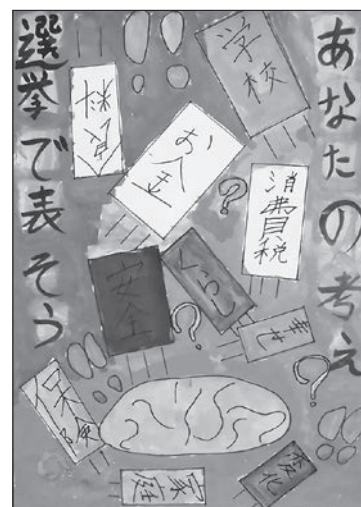 あなたの考え
選挙で表そう
学校
お金
消費税
安全
くらし
幸せ
保険
変化
家庭
?
?
?